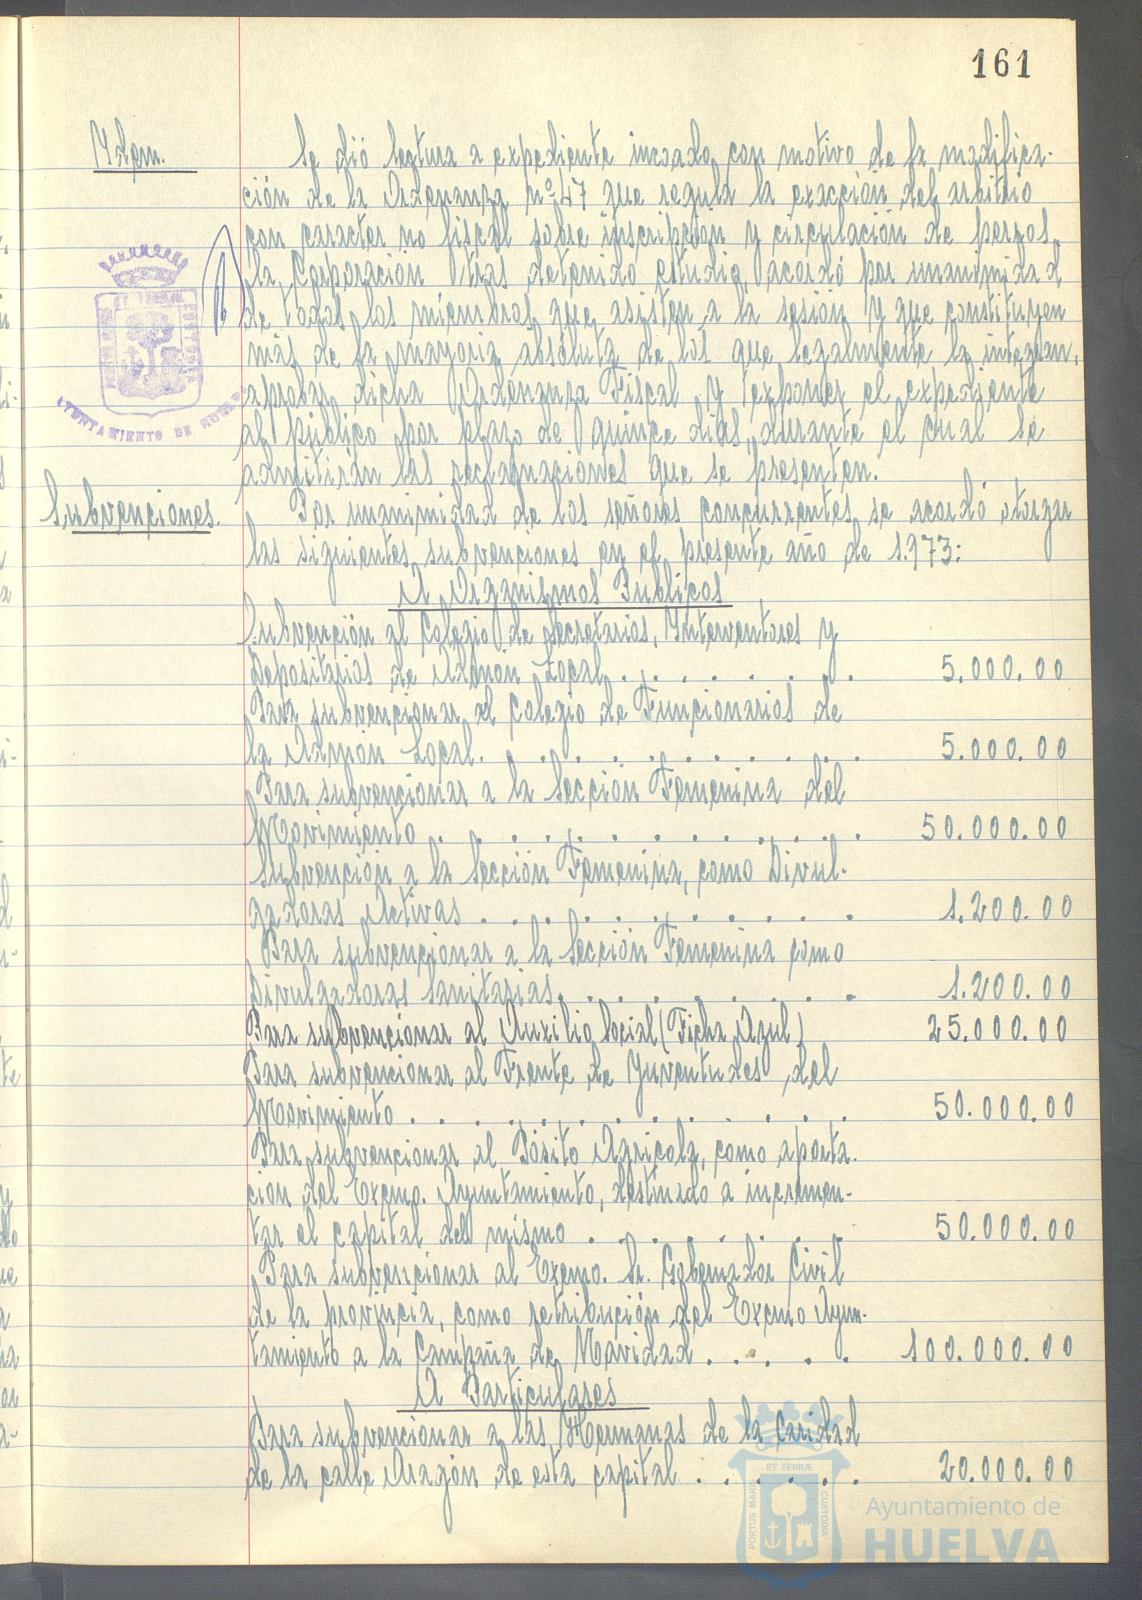 161
Idem.
Se dió lectura a expediente incoado con motivo de la modifica-
ción de la Ordenanza nº 47 que regula la exacción del arbitrio
con caracter no fiscal sobre inscripción y circulación de perros,
la Corporación tras detenido estudio, acordó por unanimidad
de todos los miembros que asisten a la sesión y que constituyen
más de la mayoría absoluta de los que legalmente la integran,
aprobar dicha Ordenanza Fiscal y exponer el expediente
al público por plazo de quince días, durante el cual se
admitirán las reclamaciones que se presenten.
AYUNTAMIENTO DE HUELVA
Subvenciones.
Por unanimidad de los señores concurrentes, se acordó otorgar
las siguientes subvenciones en el presente año de 1.973:
A Organismos Públicos
Subvención al Colegio de Secretarios, Interventores y
Depositarios de Admón Local. . . . . . . . 5.000.00
Para subvencionar al Colegio de Funcionarios de
la Admón Local. . . . . . . . . . . . 5.000.00
Para subvencionar a la Sección Femenina del
Movimiento . . . . . . . . . . . . . 50.000.00
Subvención a la Sección Femenina, como Divul-
gadoras Activas . . . . . . . . . . . 1.200.00
Para subvencionar a la Sección Femenina como
Divulgadoras Sanitarias. . . . . . . . . 1.200.00
Para subvencionar al Auxilio Social (Ficha Azul) 25.000.00
Para subvencionar al Frente de Juventudes, del
Movimiento . . . . . . . . . . . . . 50.000.00
Para subvencionar al Pósito Agricola, como aporta-
ción del Excmo. Ayuntamiento, destinado a incremen-
tar el capital del mismo . . . . . . . 50.000.00
Para subvencionar al Excmo. Sr. Gobernador Civil
de la provincia, como retribución del Excmo Ayun-
tamiento a la Campaña de Navidad . . . . . 100.000.00
A Particulares
Para subvencionar a las Hermanas de la Caridad
de la calle Aragón de esta capital . . . . . . 20.000.00
ET TERRÆ
PORTUS MARIS
CUSTODIA
Ayuntamiento de
HUELVA